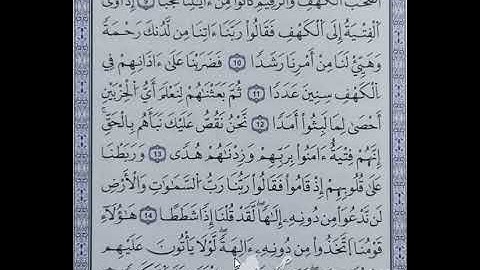 أَصْحَٰبَ ٱلْكَهْفِ وَٱلرَّقِيمِ كَانُوا۟ مِنْ ءَايَٰتِنَا عَجَبًا ۝٩ إِذْ أَوَى
ٱلْفِتْيَةُ إِلَى ٱلْكَهْفِ فَقَالُوا۟ رَبَّنَآ ءَاتِنَا مِن لَّدُنكَ رَحْمَةً
وَهَيِّئْ لَنَا مِنْ أَمْرِنَا رَشَدًا ۝١٠ فَضَرَبْنَا عَلَىٰٓ ءَاذَانِهِمْ فِى
ٱلْكَهْفِ سِنِينَ عَدَدًا ۝١١ ثُمَّ بَعَثْنَٰهُمْ لِنَعْلَمَ أَىُّ ٱلْحِزْبَيْنِ
أَحْصَىٰ لِمَا لَبِثُوٓا۟ أَمَدًا ۝١٢ نَّحْنُ نَقُصُّ عَلَيْكَ نَبَأَهُم بِٱلْحَقِّ ۚ
إِنَّهُمْ فِتْيَةٌ ءَامَنُوا۟ بِرَبِّهِمْ وَزِدْنَٰهُمْ هُدًى ۝١٣ وَرَبَطْنَا
عَلَىٰ قُلُوبِهِمْ إِذْ قَامُوا۟ فَقَالُوا۟ رَبُّنَا رَبُّ ٱلسَّمَٰوَٰتِ وَٱلْأَرْضِ
لَن نَّدْعُوَا۟ مِن دُونِهِۦٓ إِلَٰهًا ۖ لَّقَدْ قُلْنَآ إِذًا شَطَطًا ۝١٤ هَٰٓؤُلَآءِ
قَوْمُنَا ٱتَّخَذُوا۟ مِن دُونِهِۦٓ ءَالِهَةً ۖ لَّوْلَا يَأْتُونَ عَلَيْهِم